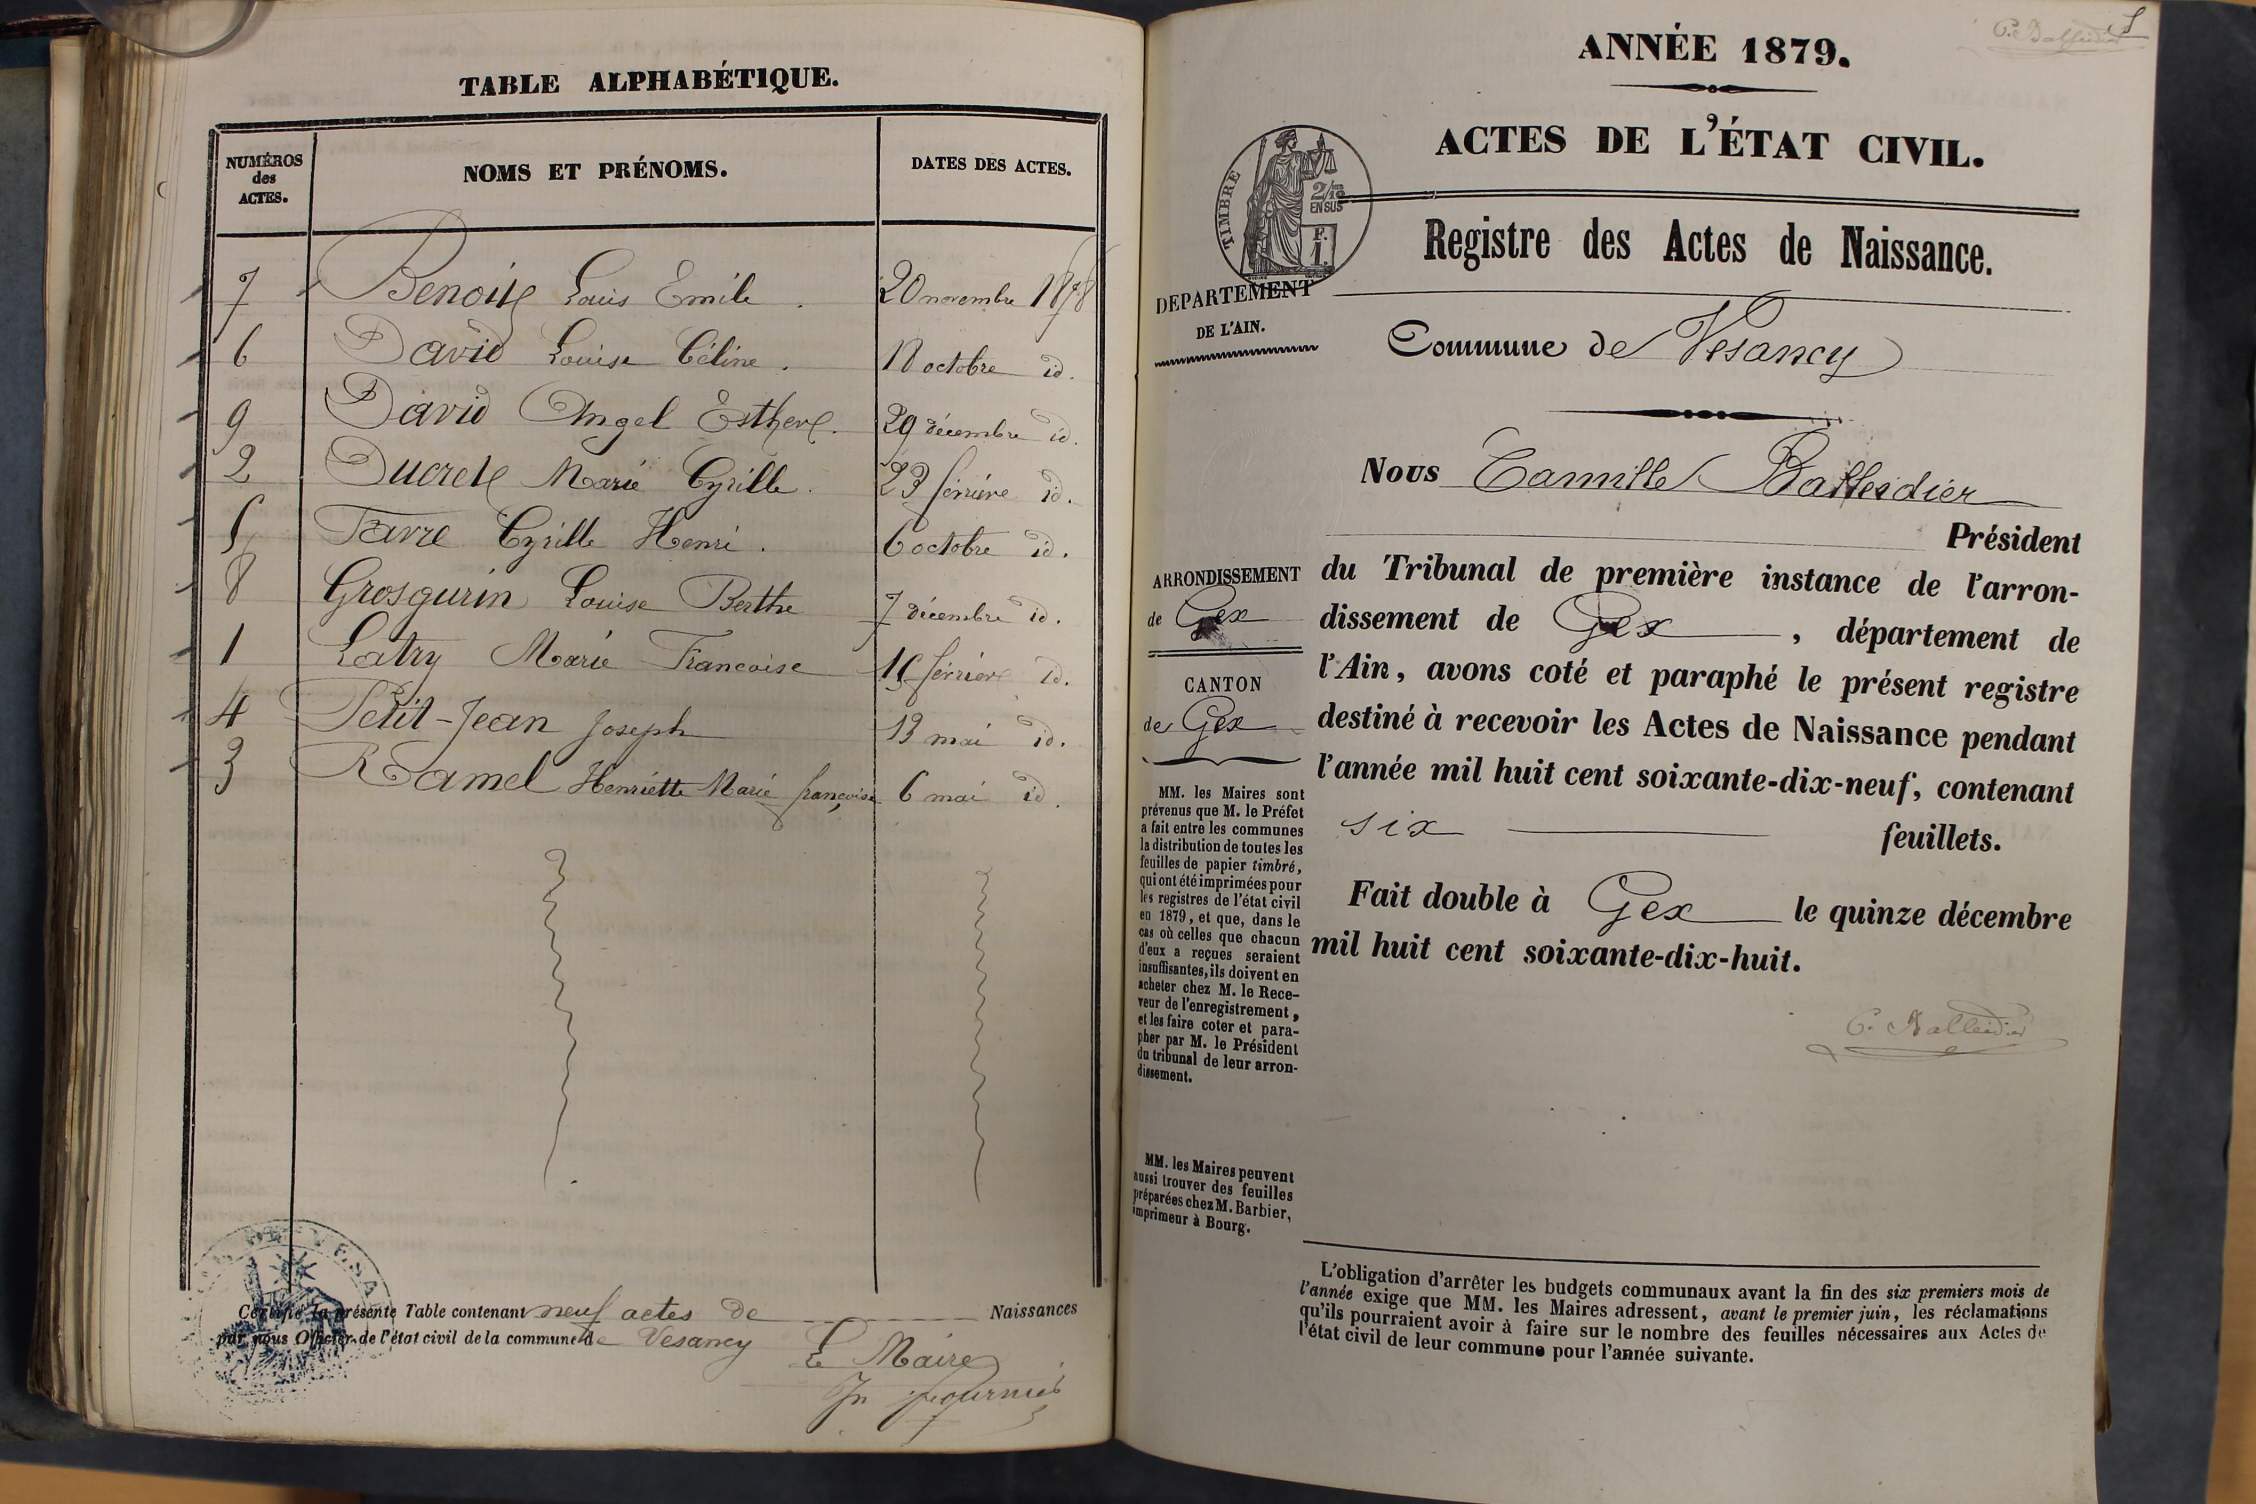 TABLE ALPHABÉTIQUE.
NUMÉROS des ACTES. NOMS ET PRÉNOMS. DATES DES ACTES.
7 Benoit Louis Emile. 20 novembre 1878
6 David Louise Céline. 18 octobre id.
9 David Angel Esther. 29 décembre id.
2 Ducret Marie Cyrille. 23 février id.
5 Favre Cyrille Henri. 6 octobre id.
8 Grosgurin Louise Berthe 7 décembre id.
1 Latry Marie Francoise 15 février id.
4 Petit-Jean Joseph 13 mai id.
3 Ramel Henriette Marie françoise 6 mai id.
Certifié la présente Table contenant neuf actes de Naissances
par nous Officier de l'état civil de la commune de Vesancy
Le Maire
Fournier
ANNÉE 1879.
ACTES DE L'ÉTAT CIVIL.
TIMBRE
2/10
EN SUS
F.
1.
Registre des Actes de Naissance.
DEPARTEMENT
DE L'AIN.
Commune de Vesancy
Nous Camille Balleidier
Président
ARRONDISSEMENT
de Gex
CANTON
de Gex
du Tribunal de première instance de l'arron-
dissement de Gex, département de
l'Ain, avons coté et paraphé le présent registre
destiné à recevoir les Actes de Naissance pendant
l'année mil huit cent soixante-dix-neuf, contenant
six feuillets.
Fait double à Gex le quinze décembre
mil huit cent soixante-dix-huit.
C. Balleidier
MM. les Maires sont
prévenus que M. le Préfet
a fait entre les communes
la distribution de toutes les
feuilles de papier timbré,
qui ont été imprimées pour
les registres de l'état civil
en 1879, et que, dans le
cas où celles que chacun
d'eux a reçues seraient
insuffisantes, ils doivent en
acheter chez M. le Rece-
veur de l'enregistrement,
et les faire coter et para-
pher par M. le Président
du tribunal de leur arron-
dissement.
MM. les Maires peuvent
aussi trouver des feuilles
préparées chez M. Barbier,
imprimeur à Bourg.
L'obligation d'arrêter les budgets communaux avant la fin des six premiers mois de
l'année exige que MM. les Maires adressent, avant le premier juin, les réclamations
qu'ils pourraient avoir à faire sur le nombre des feuilles nécessaires aux Actes de
l'état civil de leur commune pour l'année suivante.